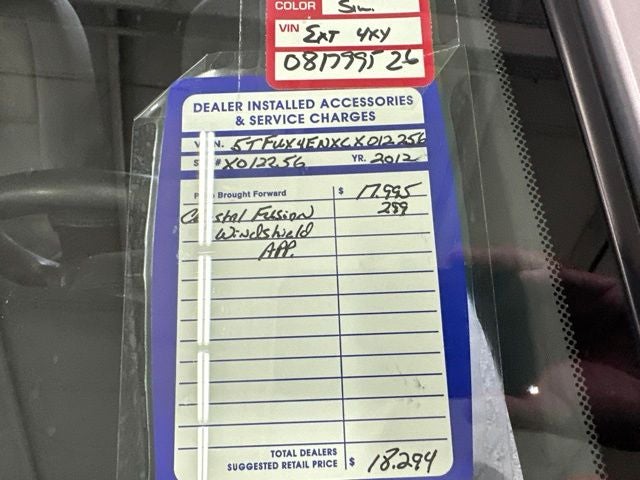 COLOR Sil.
VIN EXT 4x4
DEALER INSTALLED ACCESSORIES
& SERVICE CHARGES
5TFUX4ENXCX012256
# X012256 YR. 2012
Brought Forward $ 17,995
Crystal Fusion 289
Windshield
APP.
TOTAL DEALERS
SUGGESTED RETAIL PRICE $ 18,294